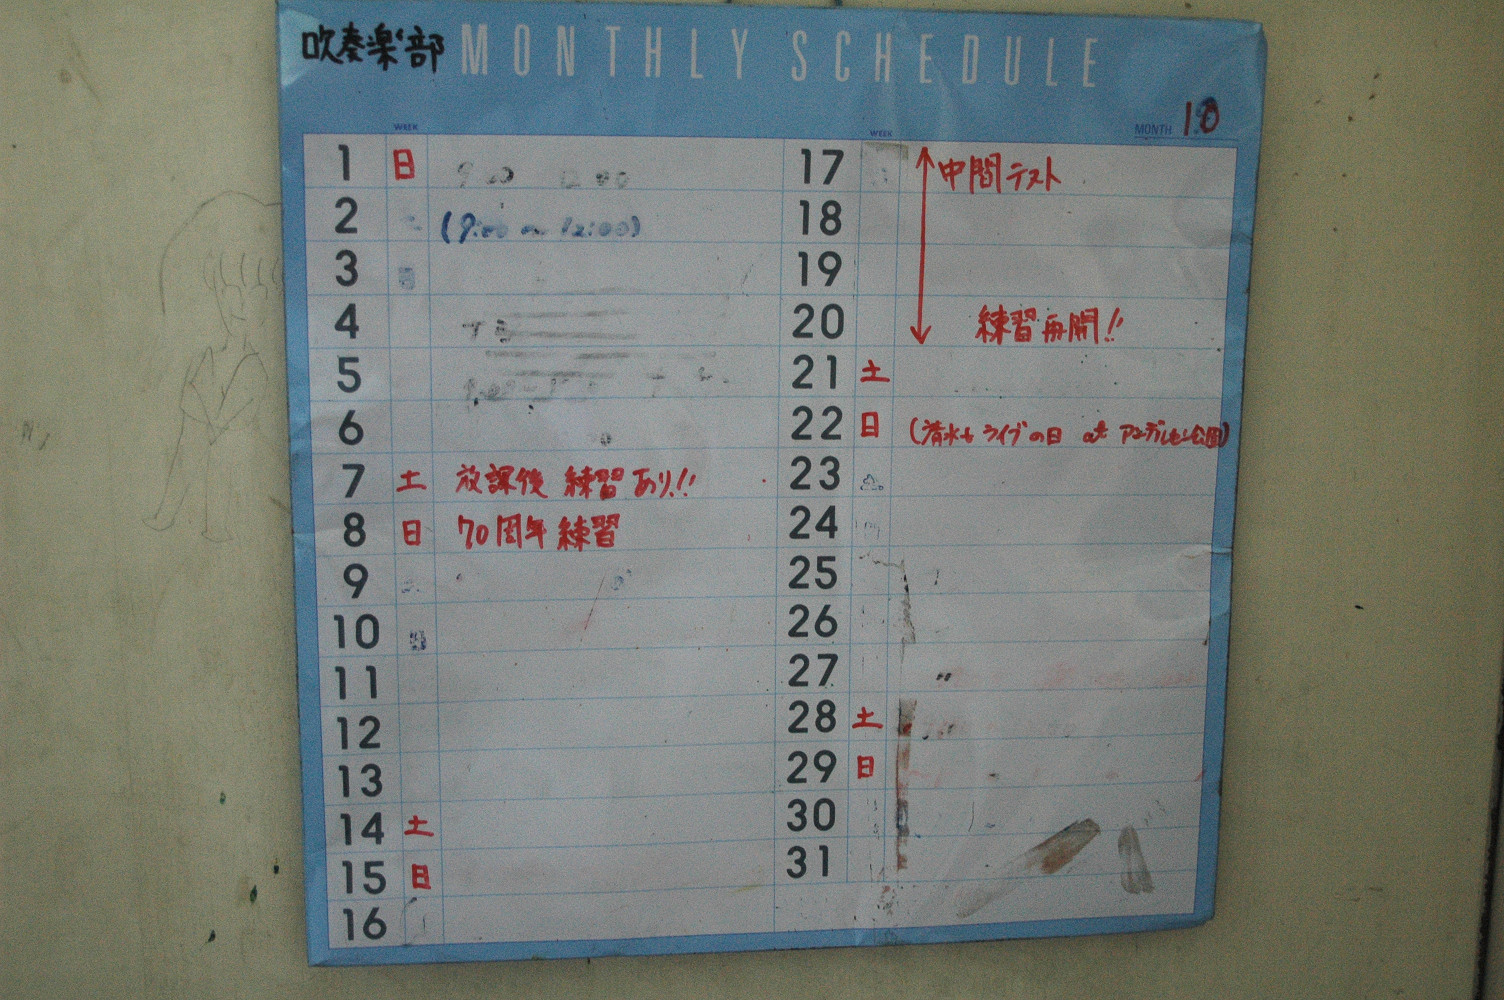 吹奏楽部 MONTHLY SCHEDULE
MONTH 10
WEEK
WEEK
1 日
2 (9:00 〜 12:00)
3
4
5
6
7 土 放課後 練習あり!!
8 日 70周年練習
9
10
11
12
13
14 土
15 日
16
17 中間テスト
18
19
20 練習再開!!
21 土
22 日 (清水っ ライブの日 at アンデルセン公園)
23
24
25
26
27
28 土
29 日
30
31